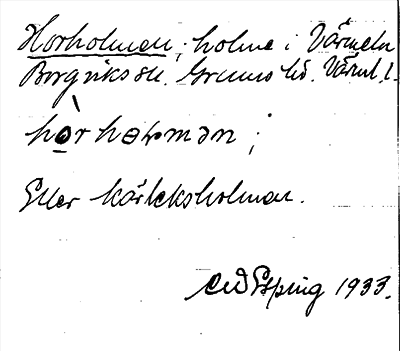 Horholmen; holme i Värmeln
Borgviks sn. Grums hd. Värml. l.
hòrhɵrmən;
Eller kärleksholmen.
1933.